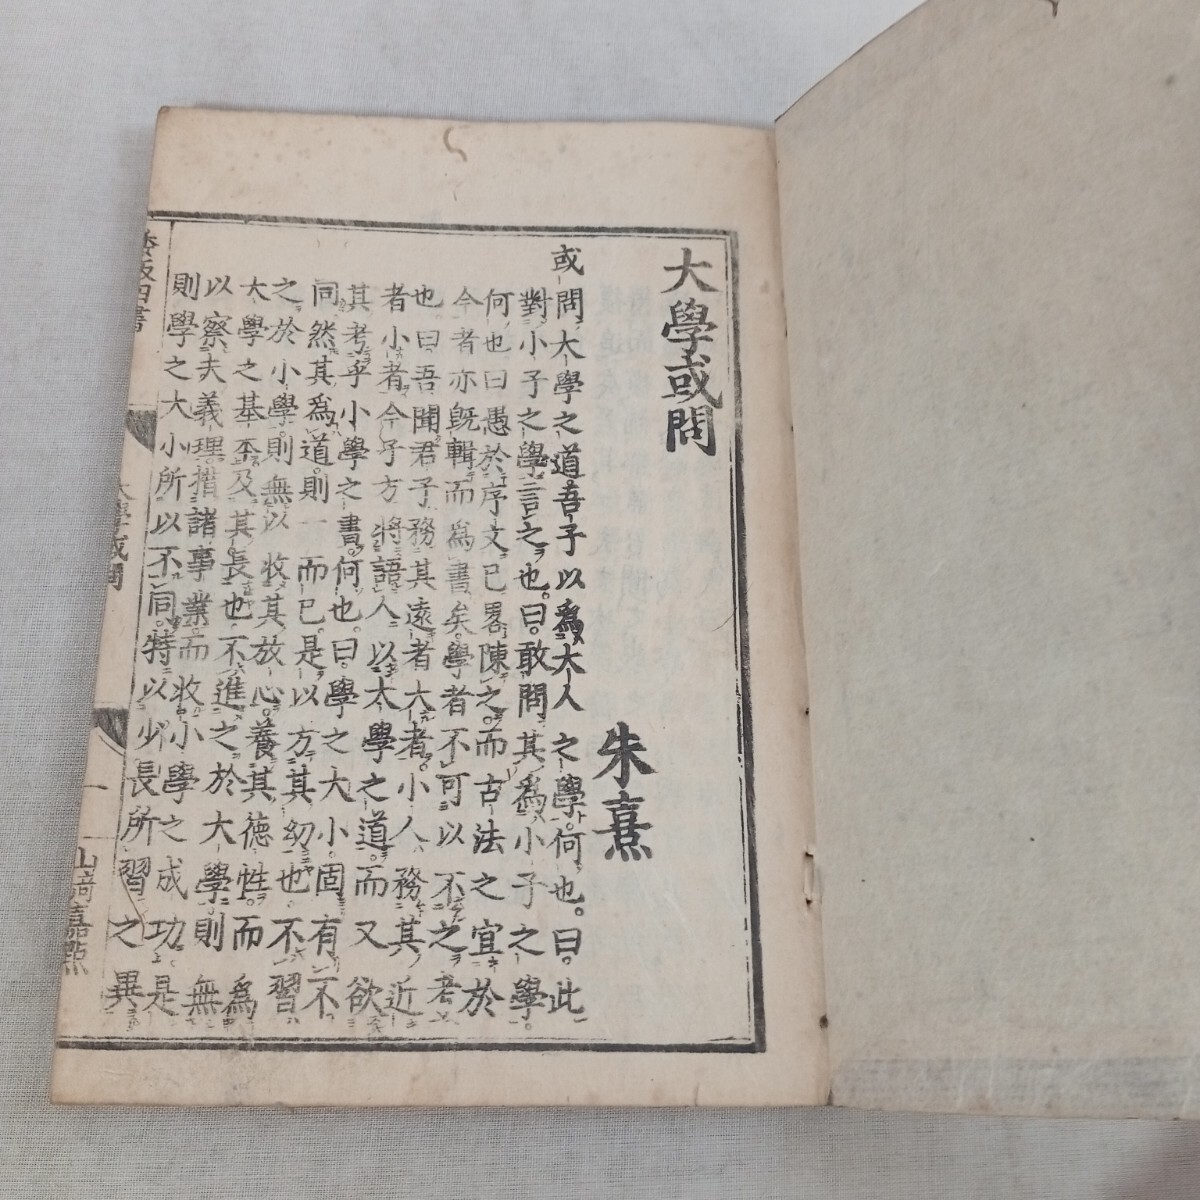 大學或問
朱熹
或問大學之道吾子以爲大人之學何也。曰。此
對小子之學言之也。曰。敢問其爲小子之學。
何也曰愚於序文已畧陳之。而古法之宜於
今者亦既輯而爲書矣。學者不可以不之考
也曰吾聞君子務其遠者大者。小人務其近
者小者今子方將語人以大學之道。而又欲
其考乎小學之書。何也。曰。學之大小。固有不
同然其爲道。則一而已。是以方其幼也不習
之於小學。則無以收其放心。養其德性。而爲
大學之基夲及其長也不進之於大學。則無
以察夫義理措諸事業。而收小學之成功。是
則學之大小所以不同。特以少長所習之異
板四書
大學或問
一
山﨑嘉㸃